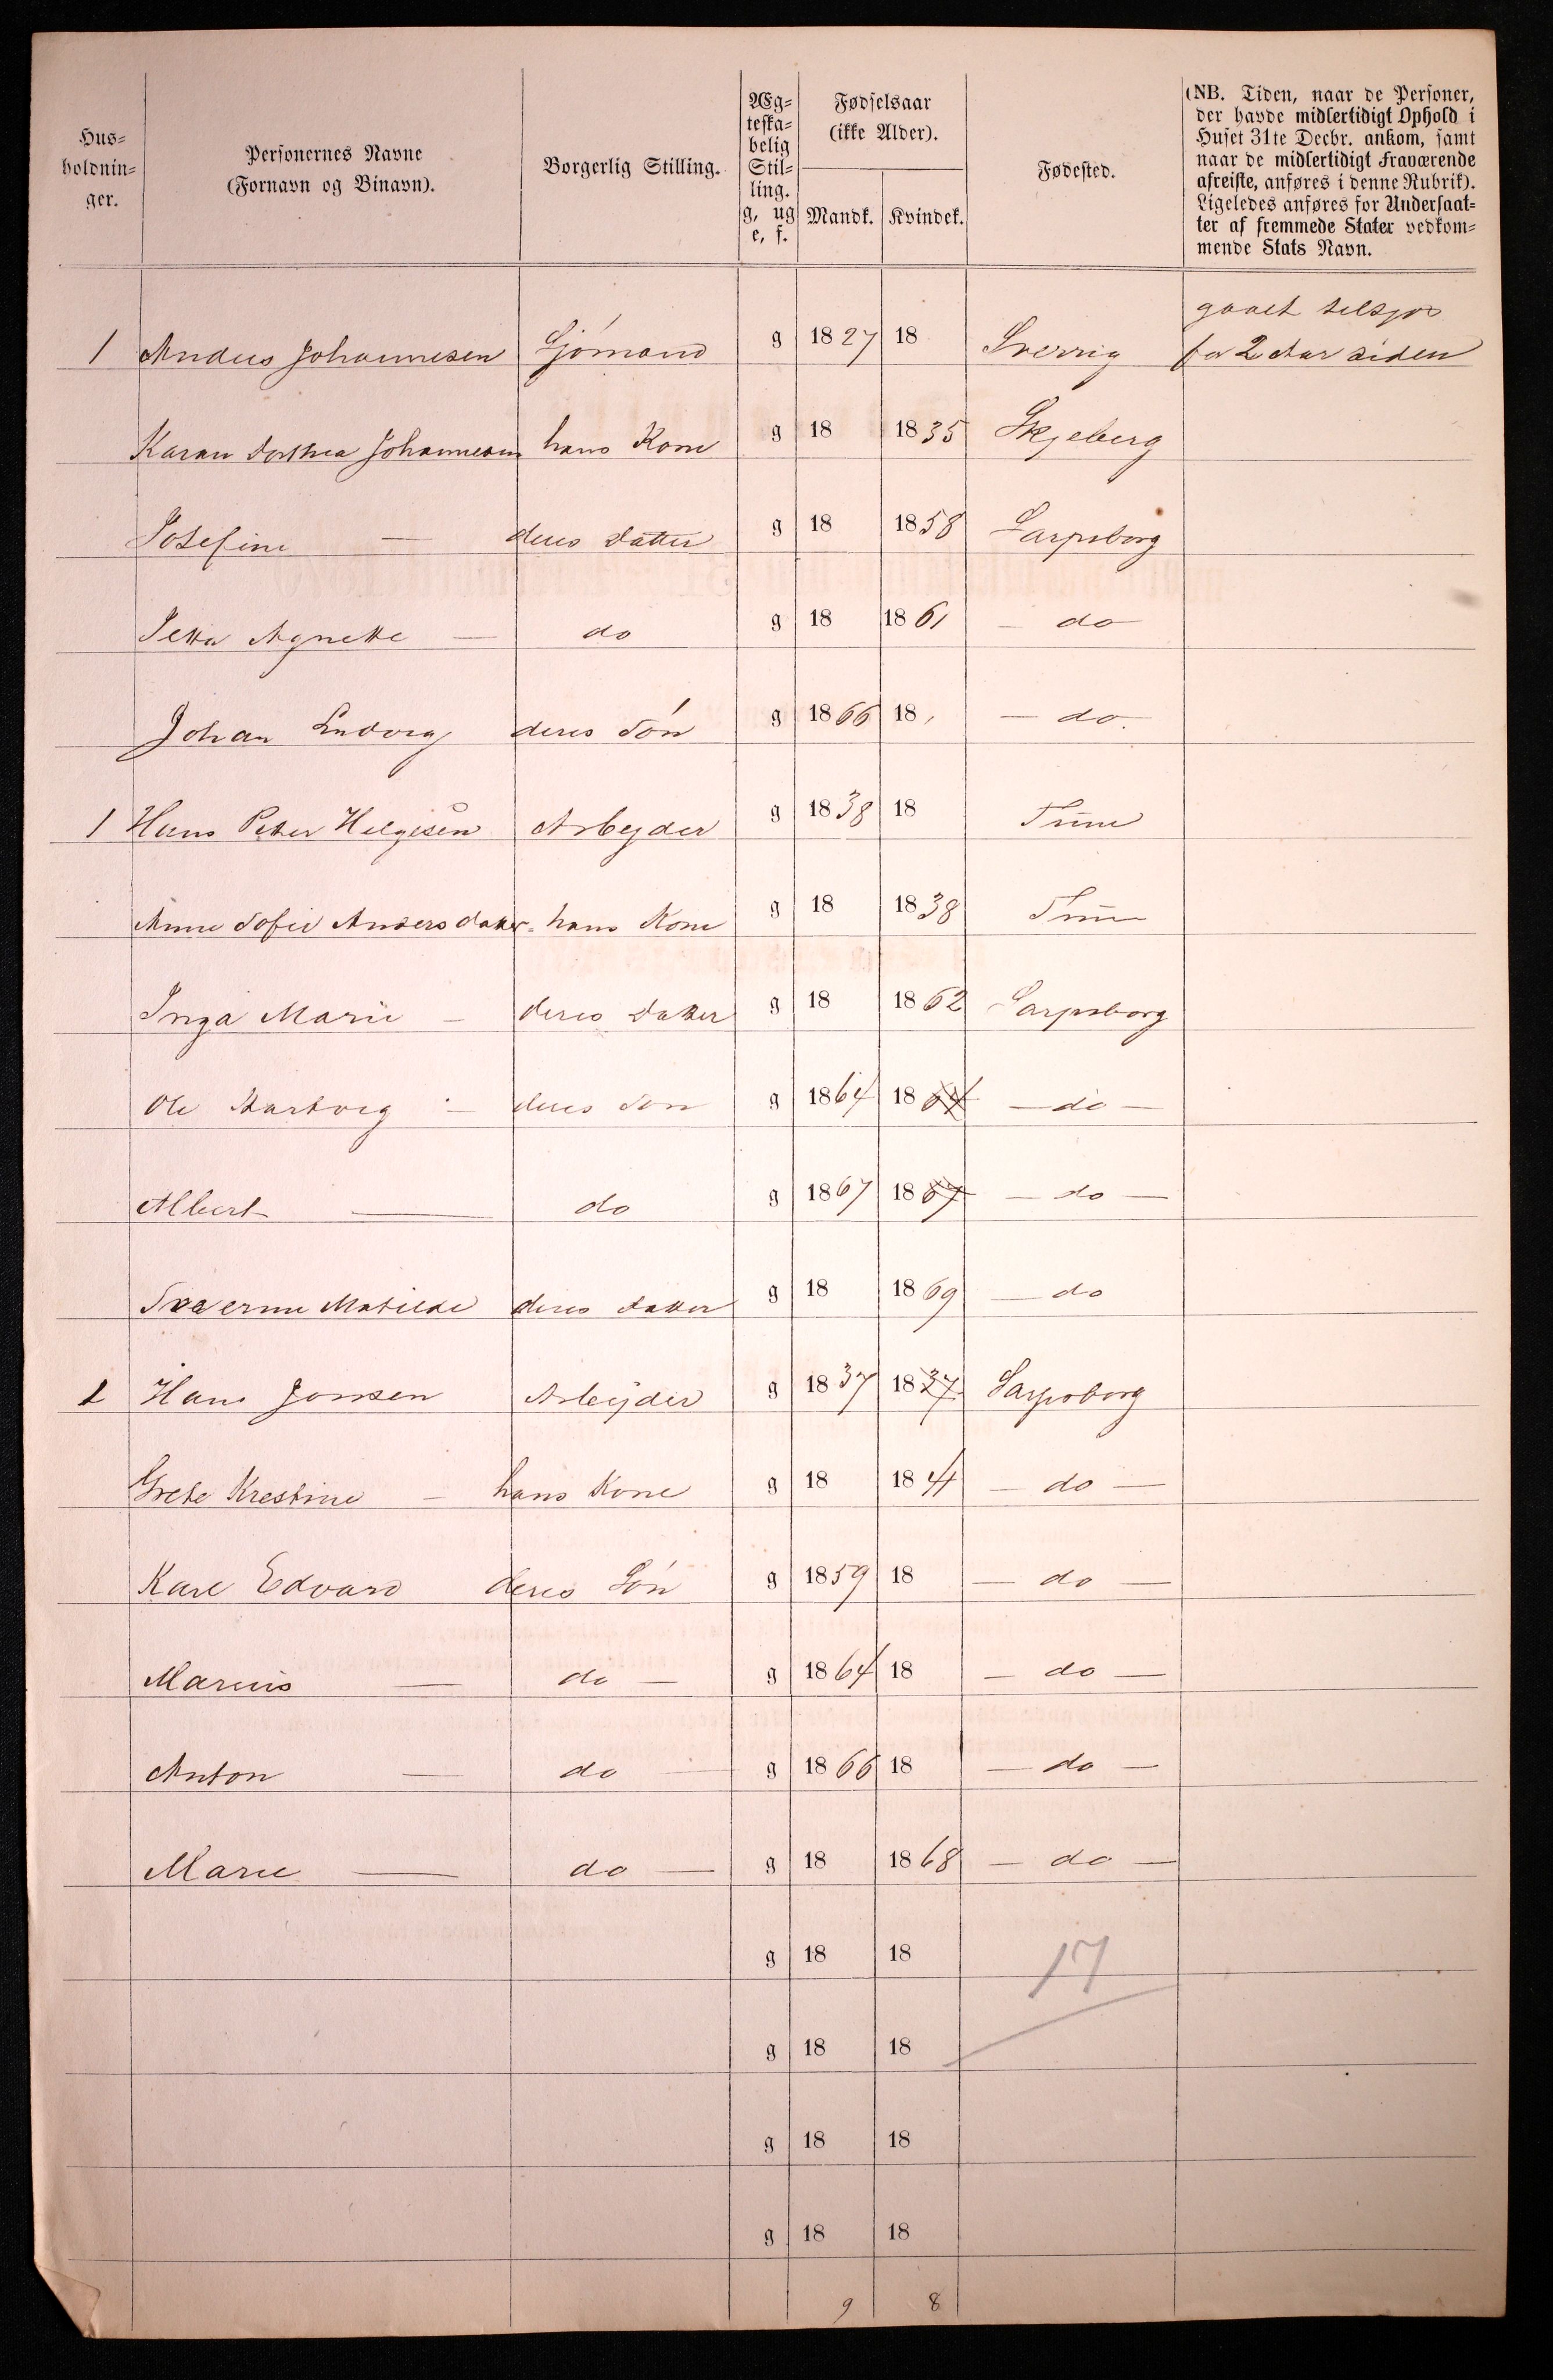 Hus-
holdnin-
ger.
Personernes Navne
(Fornavn og Binavn).
Borgerlig Stilling.
Æg-
teska-
belig
Stil-
ling.
g, ug
e, f.
Fødselsaar
(ikke Alder).
Mandk. Kvindek.
Fødested.
(NB. Tiden, naar de Personer,
der havde midlertidigt Ophold i
Huset 31te Decbr. ankom, samt
naar de midlertidigt Fraværende
afreiste, anføres i denne Rubrik).
Ligeledes anføres for Undersaat-
ter af fremmede Stater vedkom-
mende Stats Navn.
gaaet tilsjøs
1 Anders Johannesen Sjömand g 1827 18 Sverrig for 2 Aar siden
Karen Dorthea Johannesen hans Kone g 18 1835 Skjeberg
Josefine — deres Datter g 18 1858 Sarpsborg
Agnette — do g 18 1861 — do —
Johan Ludvig deres Sön g 1866 18 — do.
1 Hans Peter Helgesen Arbejder g 1838 18 Tune
Anne Sofie Andersdatter hans Kone g 18 1838 Tune
Inga Marie — deres Datter g 18 1862 Sarpsborg
Ole Hartvig — deres Søn g 1864 18 64 — do —
Albert — do g 1867 18 67 — do —
Matilde deres Datter g 18 1869 — do
1 Hans Jonsen Arbejder g 1837 18 37 Sarpsborg
Grete Krestine — hans Kone g 18 1841 — do —
Karl Edvard deres Sön g 1859 18 — do —
Marius — do — g 1864 18 — do —
Anton — do — g 1866 18 — do —
Marie — do — g 18 1868 — do —
g 18 18 17
g 18 18
g 18 18
g 18 18
9 8